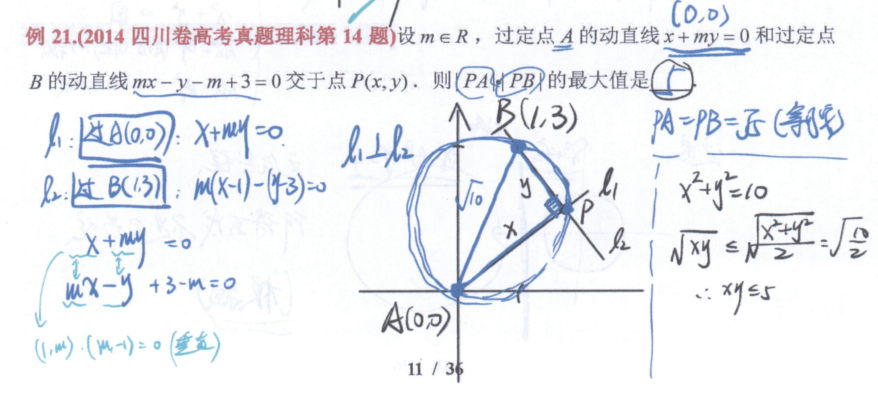 (0,0)
例 21.(2014 四川卷高考真题理科第 14 题)设 m∈R ，过定点 A 的动直线 x+my=0 和过定点
B 的动直线 mx−y−m+3=0 交于点 P(x,y) ．则|PA|·|PB|的最大值是 5 .
l₁: 过A(0,0): X+my=0.
l₂: 过 B(1,3) : m(x-1)-(y-3)=0
x+my =0
mx-y +3-m=0
(1,m)·(m,-1)=0 (垂直)
l₁⊥l₂
B(1,3)
√10
y
x
P
l₁
l₂
A(0,0)
PA=PB=√5 (等号)
x²+y²=10
√xy ≤ √x²+y²/2 = √10/2
∴ xy≤5
11 / 36